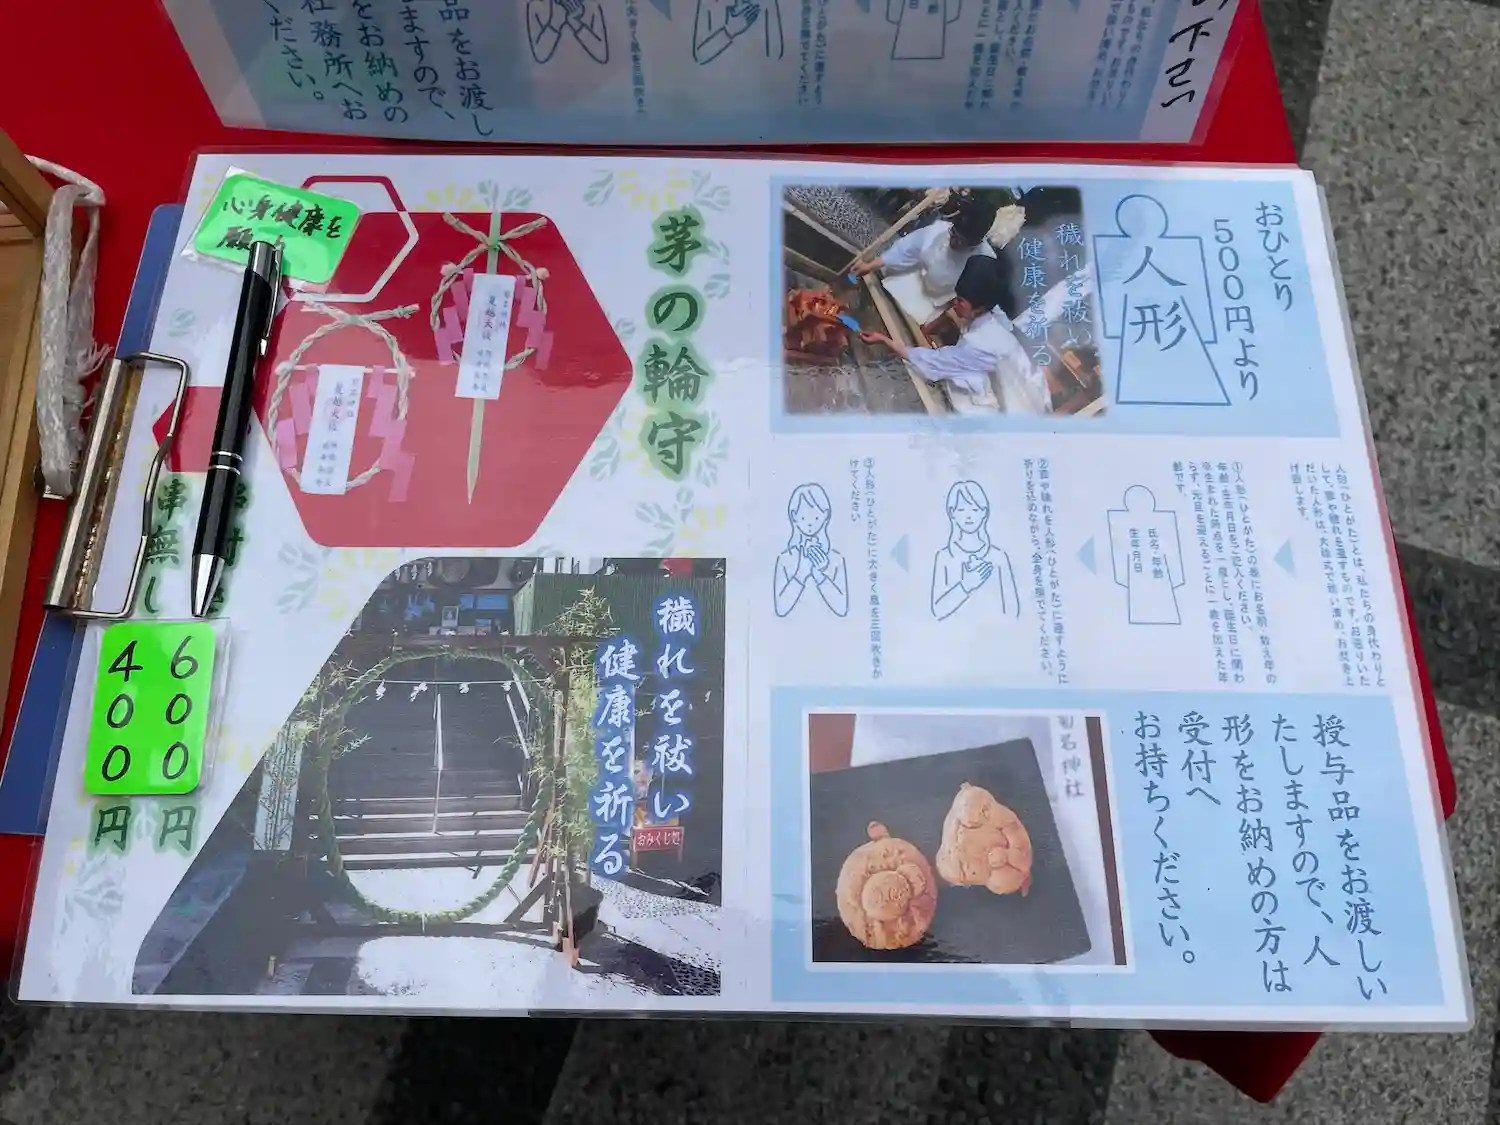 下さい
品をお渡し
ますので、
をお納めの
社務所へお
ください。
心身健康を
茅の輪守
夏越大祓
夏越大祓
串無し
600
400
円
円
穢れを祓い
健康を祈る
おみくじ処
おひとり
500円より
人形
穢れを祓い
健康を祈る
人形(ひとがた)とは、私たちの身代わりと
①人形(ひとがた)の紙にお名前、数え年の
年齢、生年月日をご記入ください。
※生まれた時点を一歳とし、誕生日に関わ
らず、元旦を迎えるごとに一歳を加えた年
齢です。
氏名・年齢
生年月日
②罪や穢れを人形(ひとがた)に遷すように
祈りを込めながら、全身を撫でてください。
③人形(ひとがた)に大きく息を三回吹きか
けてください
授与品をお渡しい
たしますので、人
形をお納めの方は
受付へ
お持ちください。
名神社